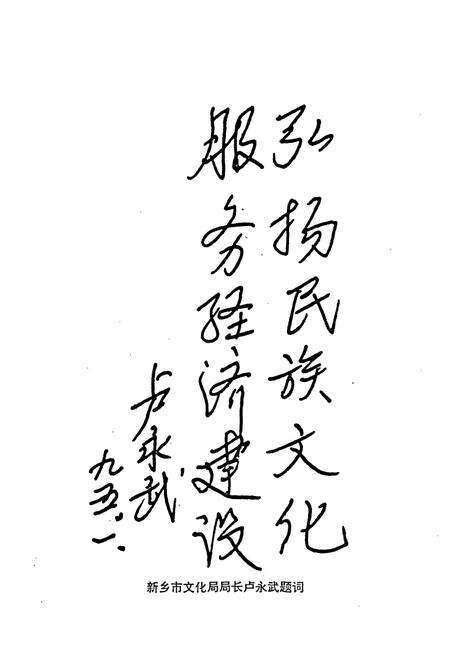 弘扬民族文化
服务经济建设
卢永武
九五.一.
新乡市文化局局长卢永武题词